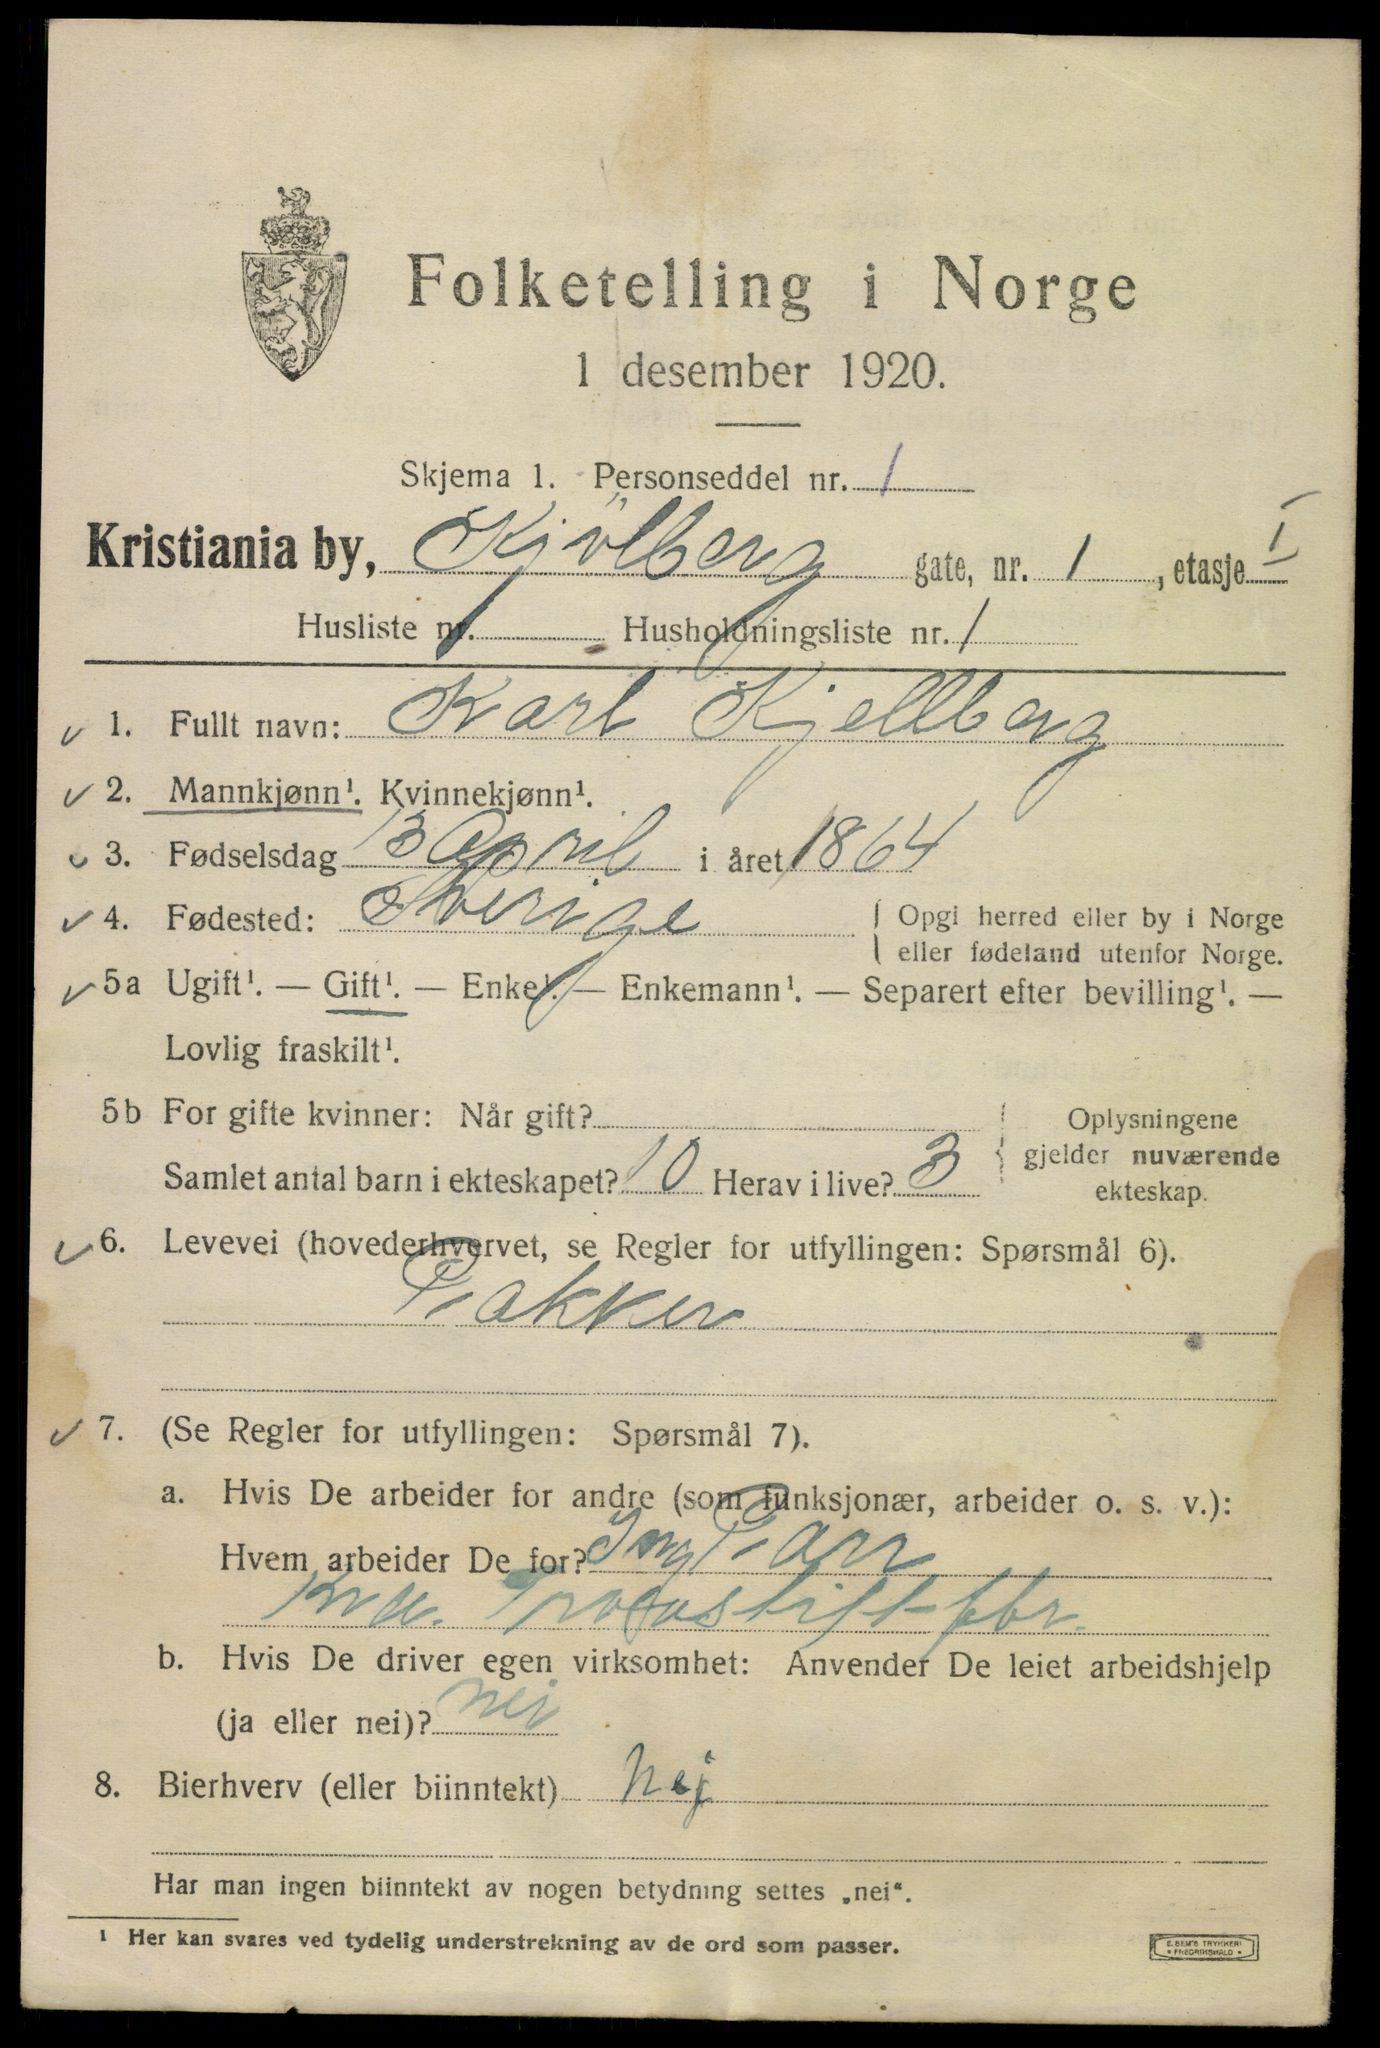 Folketelling i Norge
1 desember 1920.
Skjema 1. Personseddel nr. 1
Kristiania by, Kjölberg gate, nr. 1, etasje I
Husliste nr. 1 Husholdningsliste nr. 1
1. Fullt navn: Karl Kjellberg
2. Mannkjønn¹. Kvinnekjønn¹.
3. Fødselsdag 13 April i året 1864
4. Fødested: Sverige { Opgi herred eller by i Norge
eller fødeland utenfor Norge.
5a Ugift¹. — Gift¹. — Enke¹. — Enkemann¹. — Separert efter bevilling¹. —
Lovlig fraskilt¹.
5b For gifte kvinner: Når gift?
Samlet antal barn i ekteskapet? 10 Herav i live? 3
Oplysningene
gjelder nuværende
ekteskap.
6. Levevei (hovederhvervet, se Regler for utfyllingen: Spørsmål 6).
Pakker
7. (Se Regler for utfyllingen: Spørsmål 7).
a. Hvis De arbeider for andre (som funksjonær, arbeider o. s. v.):
Hvem arbeider De for? Ing Parr
Kra.
b. Hvis De driver egen virksomhet: Anvender De leiet arbeidshjelp
(ja eller nei)? nei
8. Bierhverv (eller biinntekt) nej
Har man ingen biinntekt av nogen betydning settes „nei“.
¹ Her kan svares ved tydelig understrekning av de ord som passer.
E. SEM'S TRYKKERI
• FREDRIKSHALD •